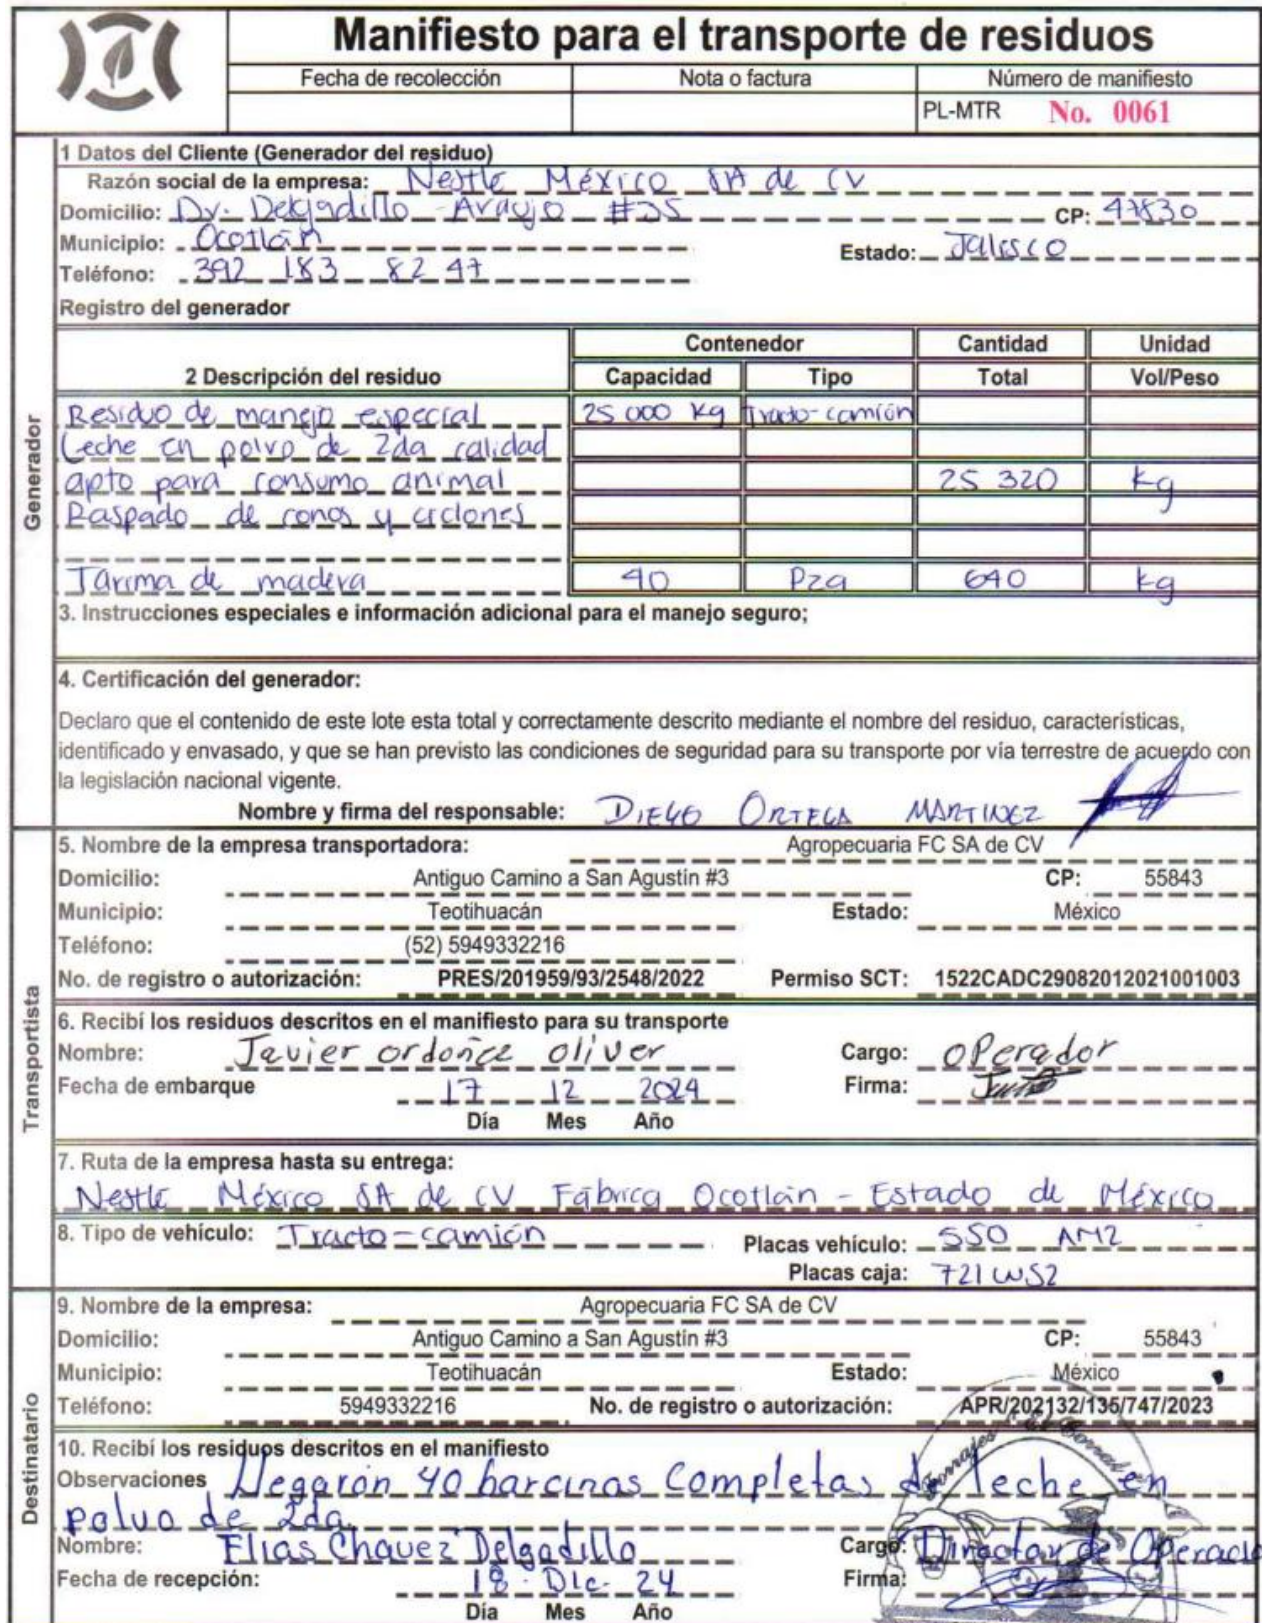 Manifiesto para el transporte de residuos
Fecha de recolección Nota o factura Número de manifiesto
PL-MTR No. 0061
Generador
1 Datos del Cliente (Generador del residuo)
Razón social de la empresa: Nestle México SA de CV
Domicilio: Dr. Delgadillo Araujo #35 CP: 47830
Municipio: Ocotlán Estado: Jalisco
Teléfono: 392 183 82 47
Registro del generador
Contenedor Cantidad Unidad
2 Descripción del residuo Capacidad Tipo Total Vol/Peso
Residuo de manejo especial 25 000 Kg Tracto-camión
Leche en polvo de 2da calidad
apto para consumo animal 25 320 kg
Raspado de conos y ciclones
Tarima de madera 40 Pza 640 kg
3. Instrucciones especiales e información adicional para el manejo seguro;
4. Certificación del generador:
Declaro que el contenido de este lote esta total y correctamente descrito mediante el nombre del residuo, características,
identificado y envasado, y que se han previsto las condiciones de seguridad para su transporte por vía terrestre de acuerdo con
la legislación nacional vigente.
Nombre y firma del responsable: DIEGO ORTEGA MARTINEZ
Transportista
5. Nombre de la empresa transportadora: Agropecuaria FC SA de CV
Domicilio: Antiguo Camino a San Agustín #3 CP: 55843
Municipio: Teotihuacán Estado: México
Teléfono: (52) 5949332216
No. de registro o autorización: PRES/201959/93/2548/2022 Permiso SCT: 1522CADC29082012021001003
6. Recibí los residuos descritos en el manifiesto para su transporte
Nombre: Javier ordoñez oliver Cargo: oPerador
Fecha de embarque 17 12 2024 Firma:
Día Mes Año
7. Ruta de la empresa hasta su entrega:
Nestlé México SA de CV Fábrica Ocotlán - Estado de México
8. Tipo de vehículo: Tracto-camión Placas vehículo: 550 AM2
Placas caja: 721 WS2
Destinatario
9. Nombre de la empresa: Agropecuaria FC SA de CV
Domicilio: Antiguo Camino a San Agustín #3 CP: 55843
Municipio: Teotihuacán Estado: México
Teléfono: 5949332216 No. de registro o autorización: APR/202132/135/747/2023
10. Recibí los residuos descritos en el manifiesto
Observaciones Llegarón 40 barcinas Completas de leche en
polvo de 2da.
Nombre: Elias Chavez Delgadillo Cargo: Director de Operacio
Fecha de recepción: 18 - Dic - 24 Firma:
Día Mes Año
Forrajes El Corral